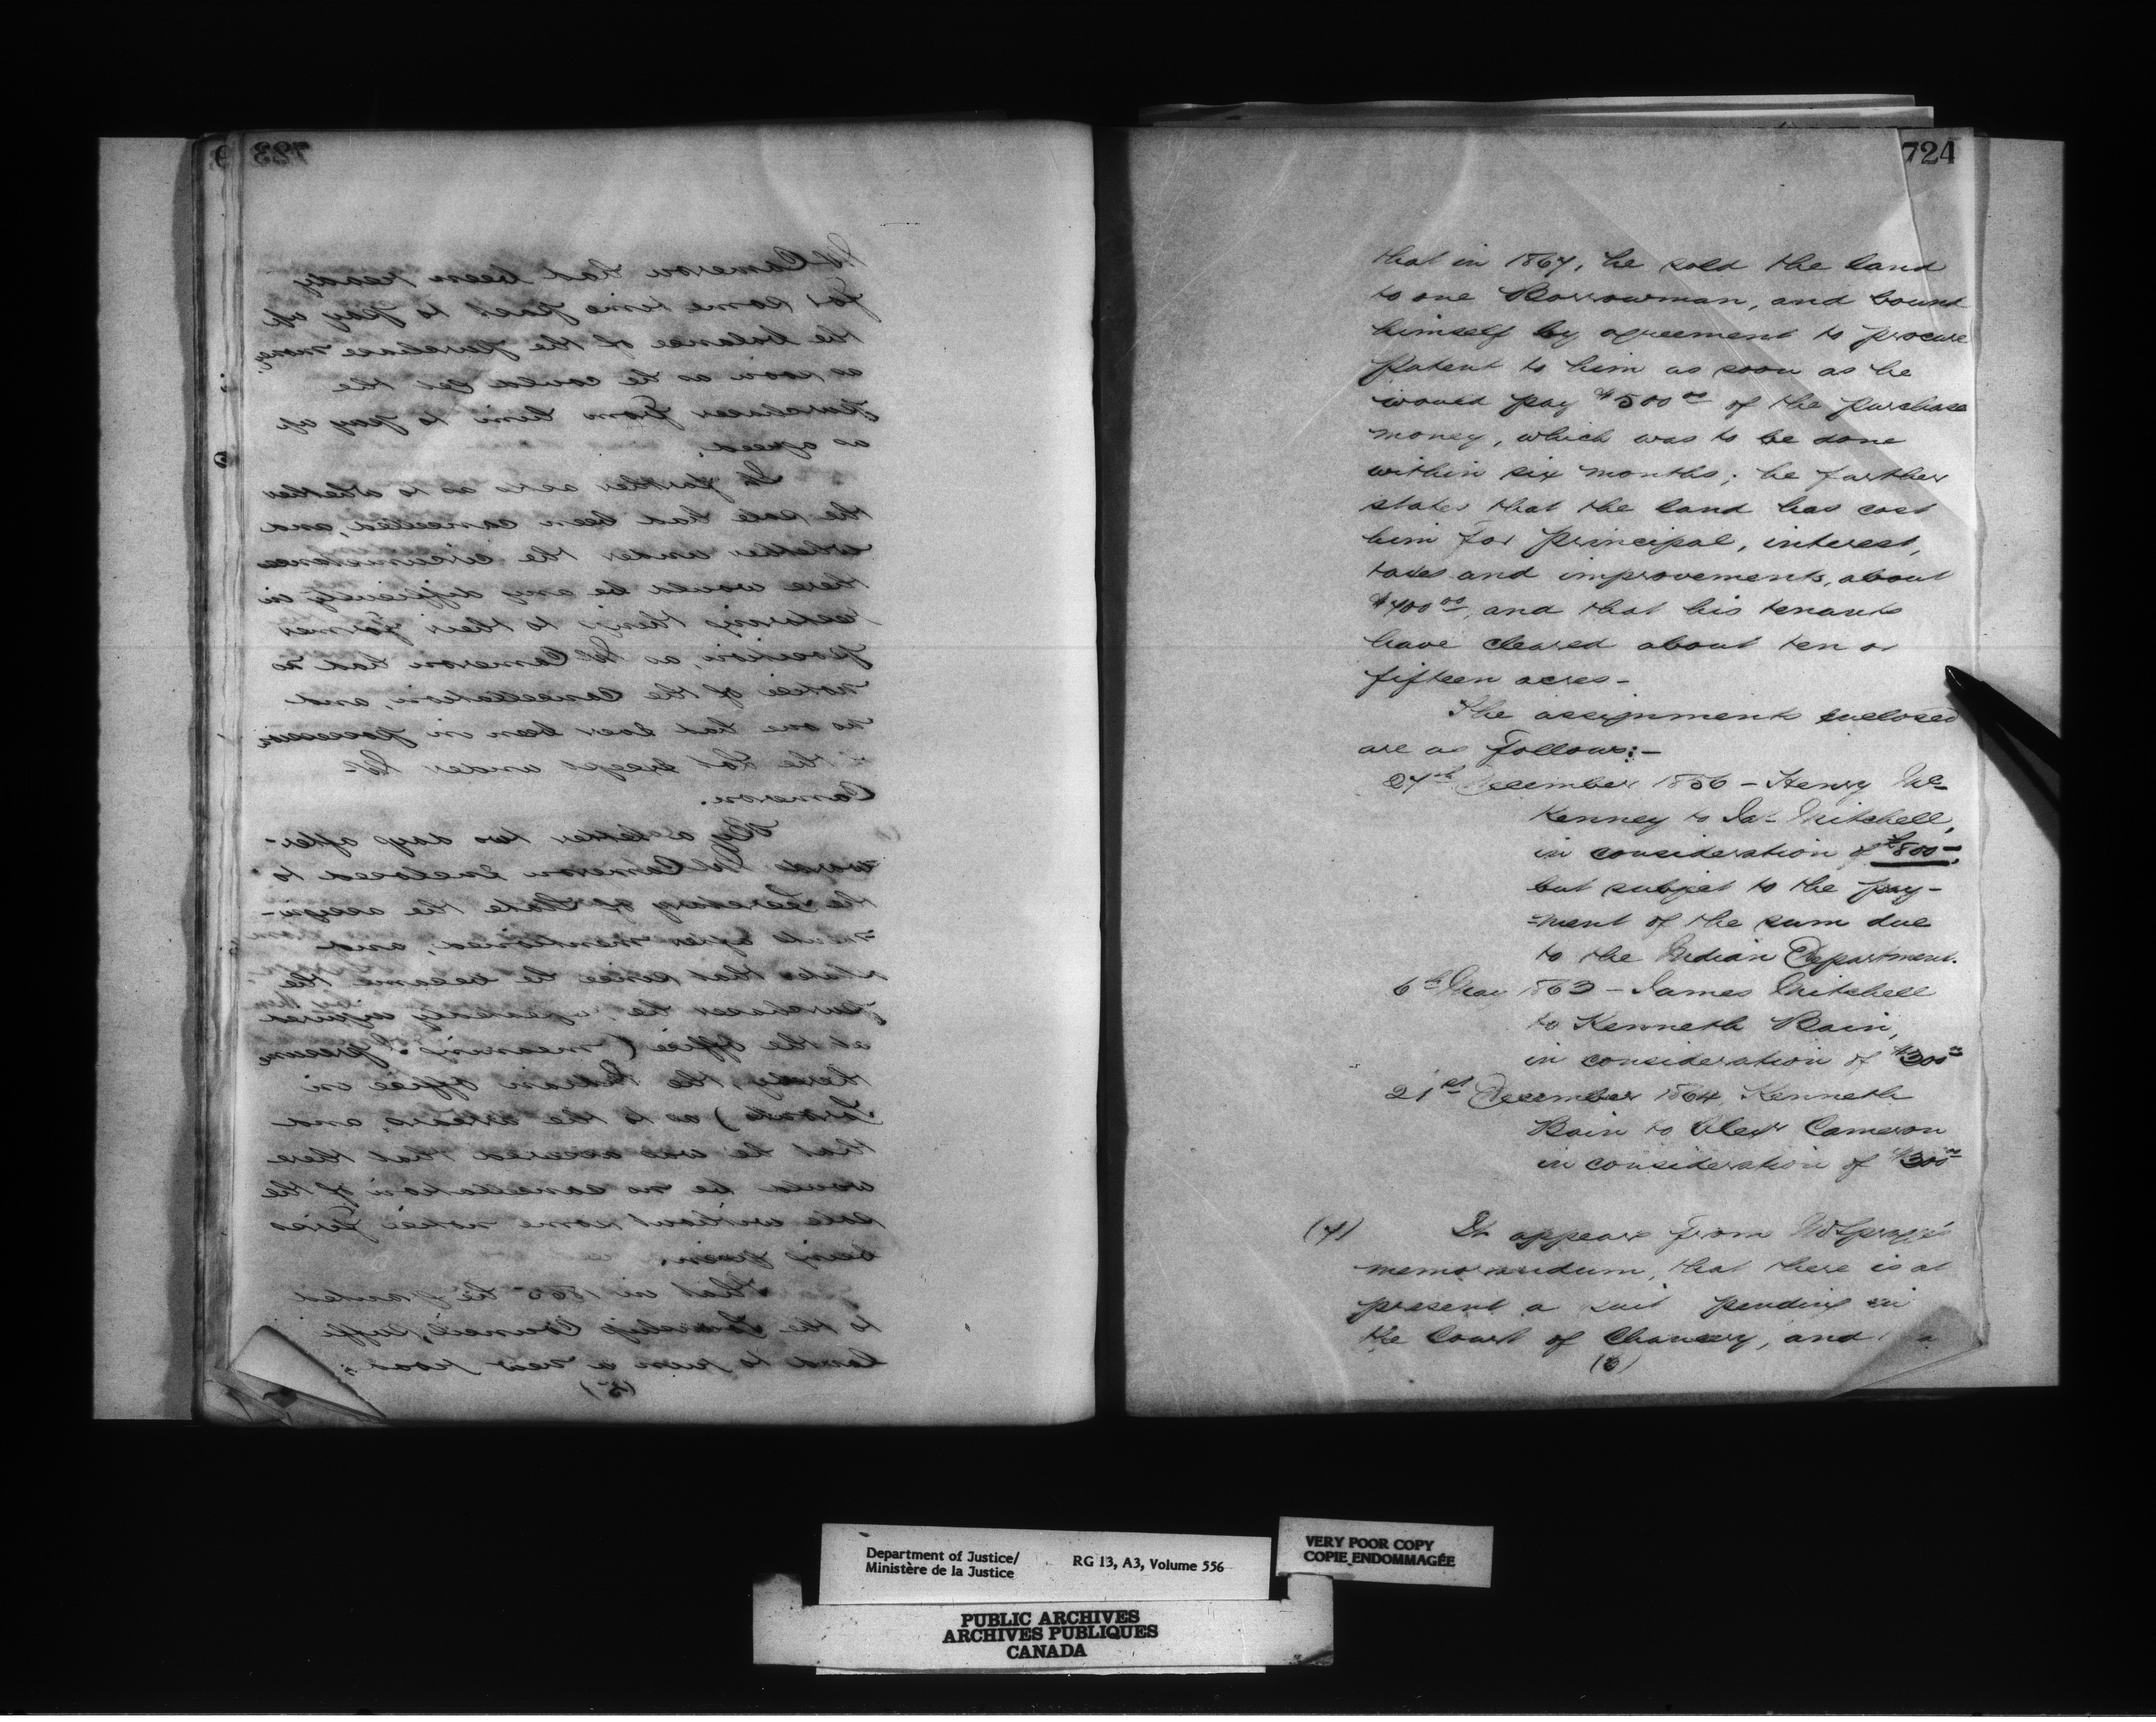 723
Mr Cameron had been ready
for some time past to pay up
the balance of the purchase money
as soon as he could get the
purchaser from him to pay up
as agreed.
He further asks as to whether
the sale had been cancelled, and
whether under the circumstances
there would be any difficulty in
restoring things to their former
position, as Mr Cameron had no
notice of the cancellation, and
no one had ever been in possession
the lot except under Mr
Cameron.
By a letter two days after-
wards Mr Cameron enclosed to
the Secretary of State the assign-
ments after mentioned, and
states that since he became the
purchaser he repeatedly inquired
at the office (meaning I presume
thereby, the Indian Office in
Toronto) as to the arrears, and
that he was assured that there
would be no cancellation of the
sale without some notice first
being given.
That in 1865 he granted
to the Township Council, suffi
land to run a new road;
(5)
724
that in 1867, he sold the land
to one Borrowman, and bound
himself by agreement to procure
Patent to him as soon as he
would pay $500 00 of the purchase
money, which was to be done
within six months; he further
states that the land has cost
him for principal, interest,
taxes and improvements, about
$400 00, and that his tenants
have cleared about ten or
fifteen acres—
The assignments enclosed
are as follows:—
27th December 1856 – Henry Mc
Kenney to Jas Mitchell,
in consideration of 800 –
but subject to the pay-
-ment of the sum due
to the Indian Department.
6th May 1863 – James Mitchell
to Kenneth Bain,
in consideration of $300
21st December 1864, Kenneth
Bain to Alexr Cameron
in consideration of $300
(7) It appears from Mr Spragge's
memorandum, that there is at
present a suit pending in
the Court of Chancery, and a
(6)
Department of Justice/
Ministère de la Justice
RG 13, A3, Volume 556
VERY POOR COPY
COPIE ENDOMMAGÉE
PUBLIC ARCHIVES
ARCHIVES PUBLIQUES
CANADA